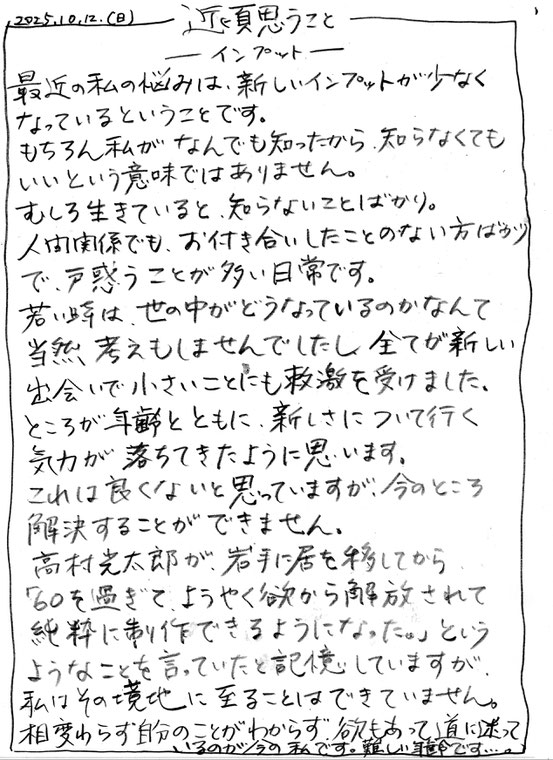 2025.10.12.(日)
近頃思うこと
―インプット―
最近の私の悩みは、新しいインプットが少なく
なっているということです。
もちろん私がなんでも知ったから、知らなくても
いいという意味ではありません。
むしろ生きていると、知らないことばかり。
人間関係でも、お付き合いしたことのない方ばかり
で、戸惑うことが多い日常です。
若い時は、世の中がどうなっているのかなんて
当然、考えもしませんでしたし、全てが新しい
出会いで小さいことにも刺激を受けました。
ところが年齢とともに、新しさについて行く
気力が落ちてきたように思います。
これは良くないと思っていますが、今のところ
解決することができません。
高村光太郎が、岩手に居を移してから
「60を過ぎて、ようやく欲から解放されて
純粋に制作できるようになった。」という
ようなことを言っていたと記憶していますが、
私はその境地に至ることはできていません。
相変わらず自分のことがわからず、欲もあって、道に迷って
いるのが今の私です。難しい年齢です…。